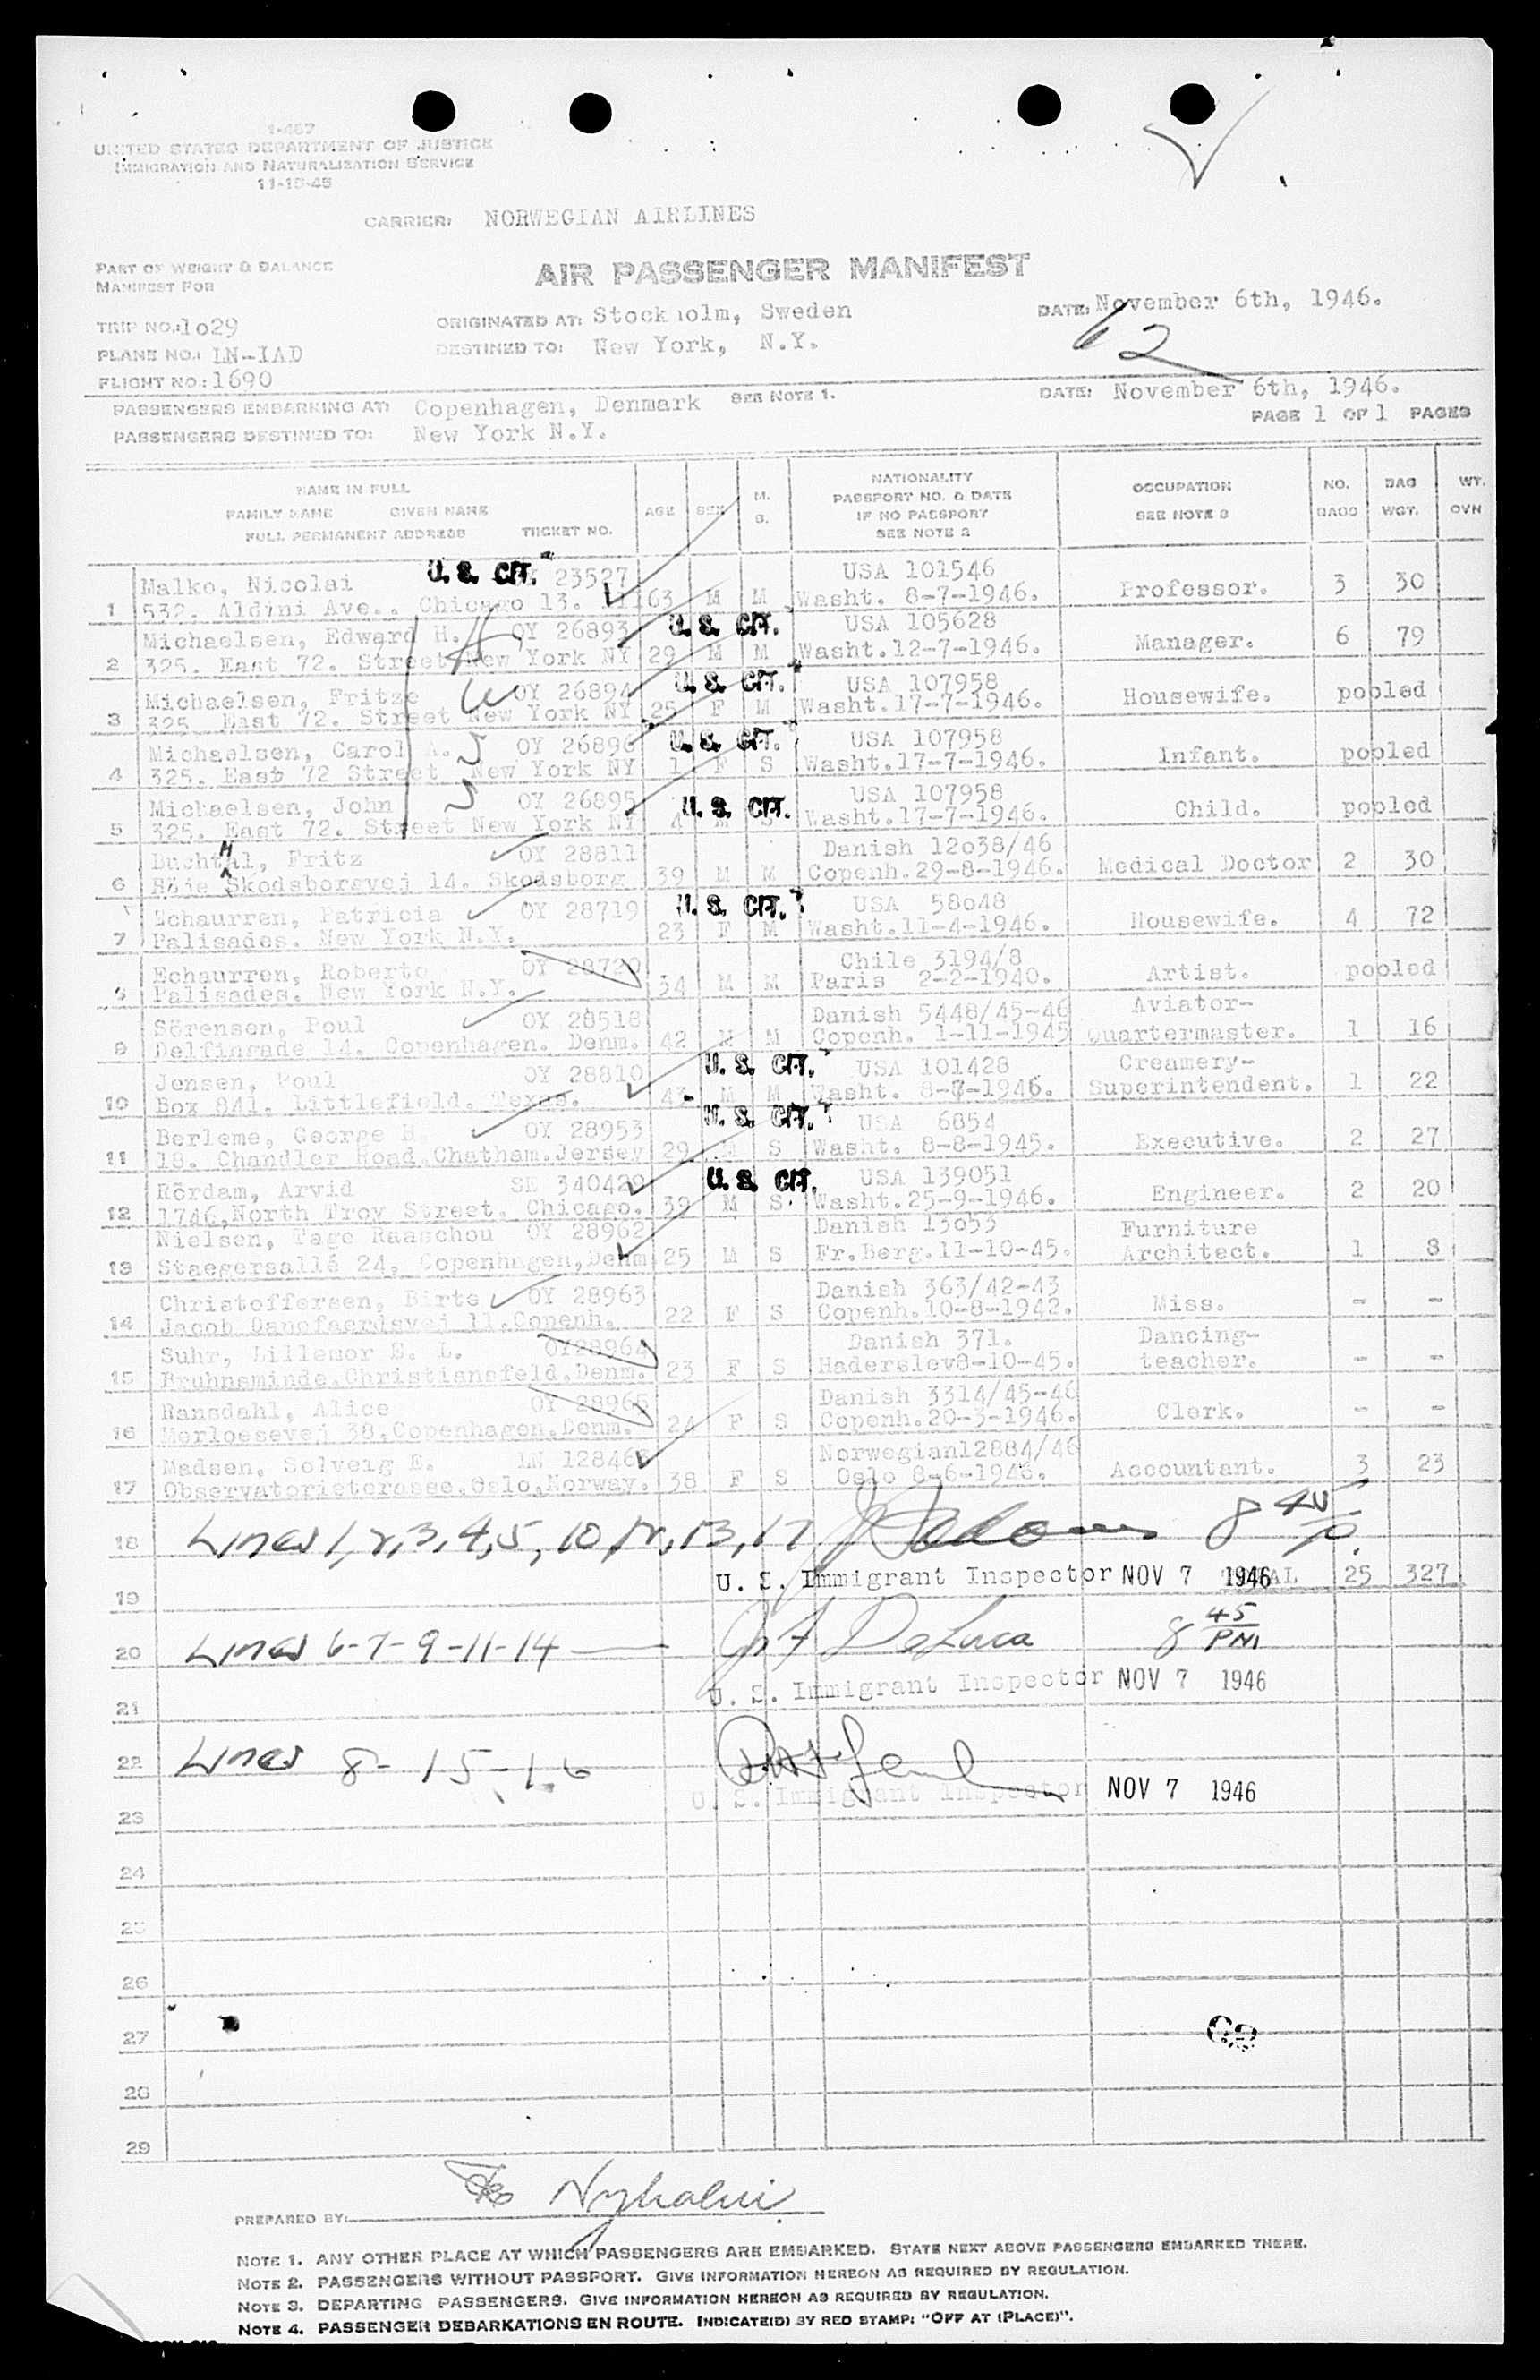 1-467
UNITED STATES DEPARTMENT OF JUSTICE
IMMIGRATION AND NATURALIZATION SERVICE
11-15-45
CARRIER: NORWEGIAN AIRLINES
PART OF WEIGHT & BALANCE
MANIFEST FOR
AIR PASSENGER MANIFEST
TRIP NO.: 1o29
ORIGINATED AT: Stockholm, Sweden
DATE: November 6th, 1946.
PLANE NO.: LN-IAD
DESTINED TO: New York, N.Y.
62
FLIGHT NO.: 1690
PASSENGERS EMBARKING AT: Copenhagen, Denmark SEE NOTE 1. DATE: November 6th, 1946.
PASSENGERS DESTINED TO: New York N.Y. PAGE 1 OF 1 PAGES
NAME IN FULL
FAMILY NAME GIVEN NAME
FULL PERMANENT ADDRESS TICKET NO.
AGE SEX M. S.
NATIONALITY
PASSPORT NO. & DATE
IF NO PASSPORT
SEE NOTE 2
OCCUPATION
SEE NOTE 3
NO. BAGS
BAG WGT.
WT. OVN
Malko, Nicolai U. S. CIT. 23527 USA 101546
1 532. Aldini Ave.. Chicago 13. 63 M M Washt. 8-7-1946. Professor. 3 30
Michaelsen, Edward H. OY 26893 U. S. CIT. USA 105628
2 325. East 72. Street New York NY 29 M M Washt.12-7-1946. Manager. 6 79
Michaelsen, Fritze OY 26894 U. S. CIT. USA 107958
3 325. East 72. Street New York NY 25 F M Washt.17-7-1946. Housewife. pooled
Michaelsen, Carol A. OY 26896 U. S. CIT. USA 107958
4 325. East 72 Street New York NY 1 F S Washt.17-7-1946. Infant. pooled
Michaelsen, John OY 26895 U. S. CIT. USA 107958
5 325. East 72. Street New York NY 4 M S Washt.17-7-1946. Child. pooled
Buchthal, Fritz OY 28811 Danish 12o38/46
6 Höje Skodsborgvej 14. Skodsborg 39 M M Copenh.29-8-1946. Medical Doctor 2 30
Echaurren, Patricia OY 28719 U. S. CIT. USA 58o48
7 Palisades. New York N.Y. 23 F M Washt.11-4-1946. Housewife. 4 72
Echaurren, Roberto OY 28720 Chile 3194/8
8 Palisades. New York N.Y. 34 M M Paris 2-2-1940. Artist. pooled
Sörensen, Poul OY 28518 Danish 5448/45-46 Aviator-
9 Delfingade 14. Copenhagen. Denm. 42 M M Copenh. 1-11-1945 Quartermaster. 1 16
Jensen, Poul OY 28810 U. S. CIT. USA 101428 Creamery-
10 Box 841. Littlefield. Texas. 43 M M Washt. 8-7-1946. Superintendent. 1 22
Berleme, George B. OY 28953 U. S. CIT. USA 6854
11 18. Chandler Road.Chatham.Jersey 29 M S Washt. 8-8-1945. Executive. 2 27
Rördam, Arvid SE 340429 U. S. CIT. USA 139051
12 1746,North Troy Street. Chicago. 39 M S Washt.25-9-1946. Engineer. 2 20
Nielsen, Tage Raaschou OY 28962 Danish 13o53 Furniture
13 Staegersallé 24, Copenhagen,Denm 25 M S Fr.Berg.11-10-45. Architect. 1 8
Christoffersen, Birte OY 28963 Danish 363/42-43
14 Jacob Danefaerdsvej 11.Copenh. 22 F S Copenh.10-8-1942. Miss. - -
Suhr, Lillemor E. L. OY28964 Danish 371. Dancing-
15 Bruhnsminde.Christiansfeld.Denm. 23 F S Haderslev8-10-45. teacher. - -
Ransdahl, Alice OY 28965 Danish 3314/45-46
16 Merloesevej 38.Copenhagen.Denm. 24 F S Copenh.20-3-1946. Clerk. - -
Madsen, Solveig E. LN 12846 Norwegian12884/46
17 Observatorieterasse.Oslo.Norway. 38 F S Oslo 8-6-1946. Accountant. 3 23
18 Lines 1,2,3,4,5,10,12,13,17 8 45 P.
19 U. S. Immigrant Inspector NOV 7 1946 TOTAL 25 327
20 Lines 6-7-9-11-14 DeLuca 8 45 PM
21 U. S. Immigrant Inspector NOV 7 1946
22 Lines 8-15-16
U. S. Immigrant Inspector NOV 7 1946
23
24
25
26
27
28
29
PREPARED BY:
NOTE 1. ANY OTHER PLACE AT WHICH PASSENGERS ARE EMBARKED. STATE NEXT ABOVE PASSENGERS EMBARKED THERE.
NOTE 2. PASSENGERS WITHOUT PASSPORT. GIVE INFORMATION HEREON AS REQUIRED BY REGULATION.
NOTE 3. DEPARTING PASSENGERS. GIVE INFORMATION HEREON AS REQUIRED BY REGULATION.
NOTE 4. PASSENGER DEBARKATIONS EN ROUTE. INDICATE(D) BY RED STAMP: "OFF AT (PLACE)".